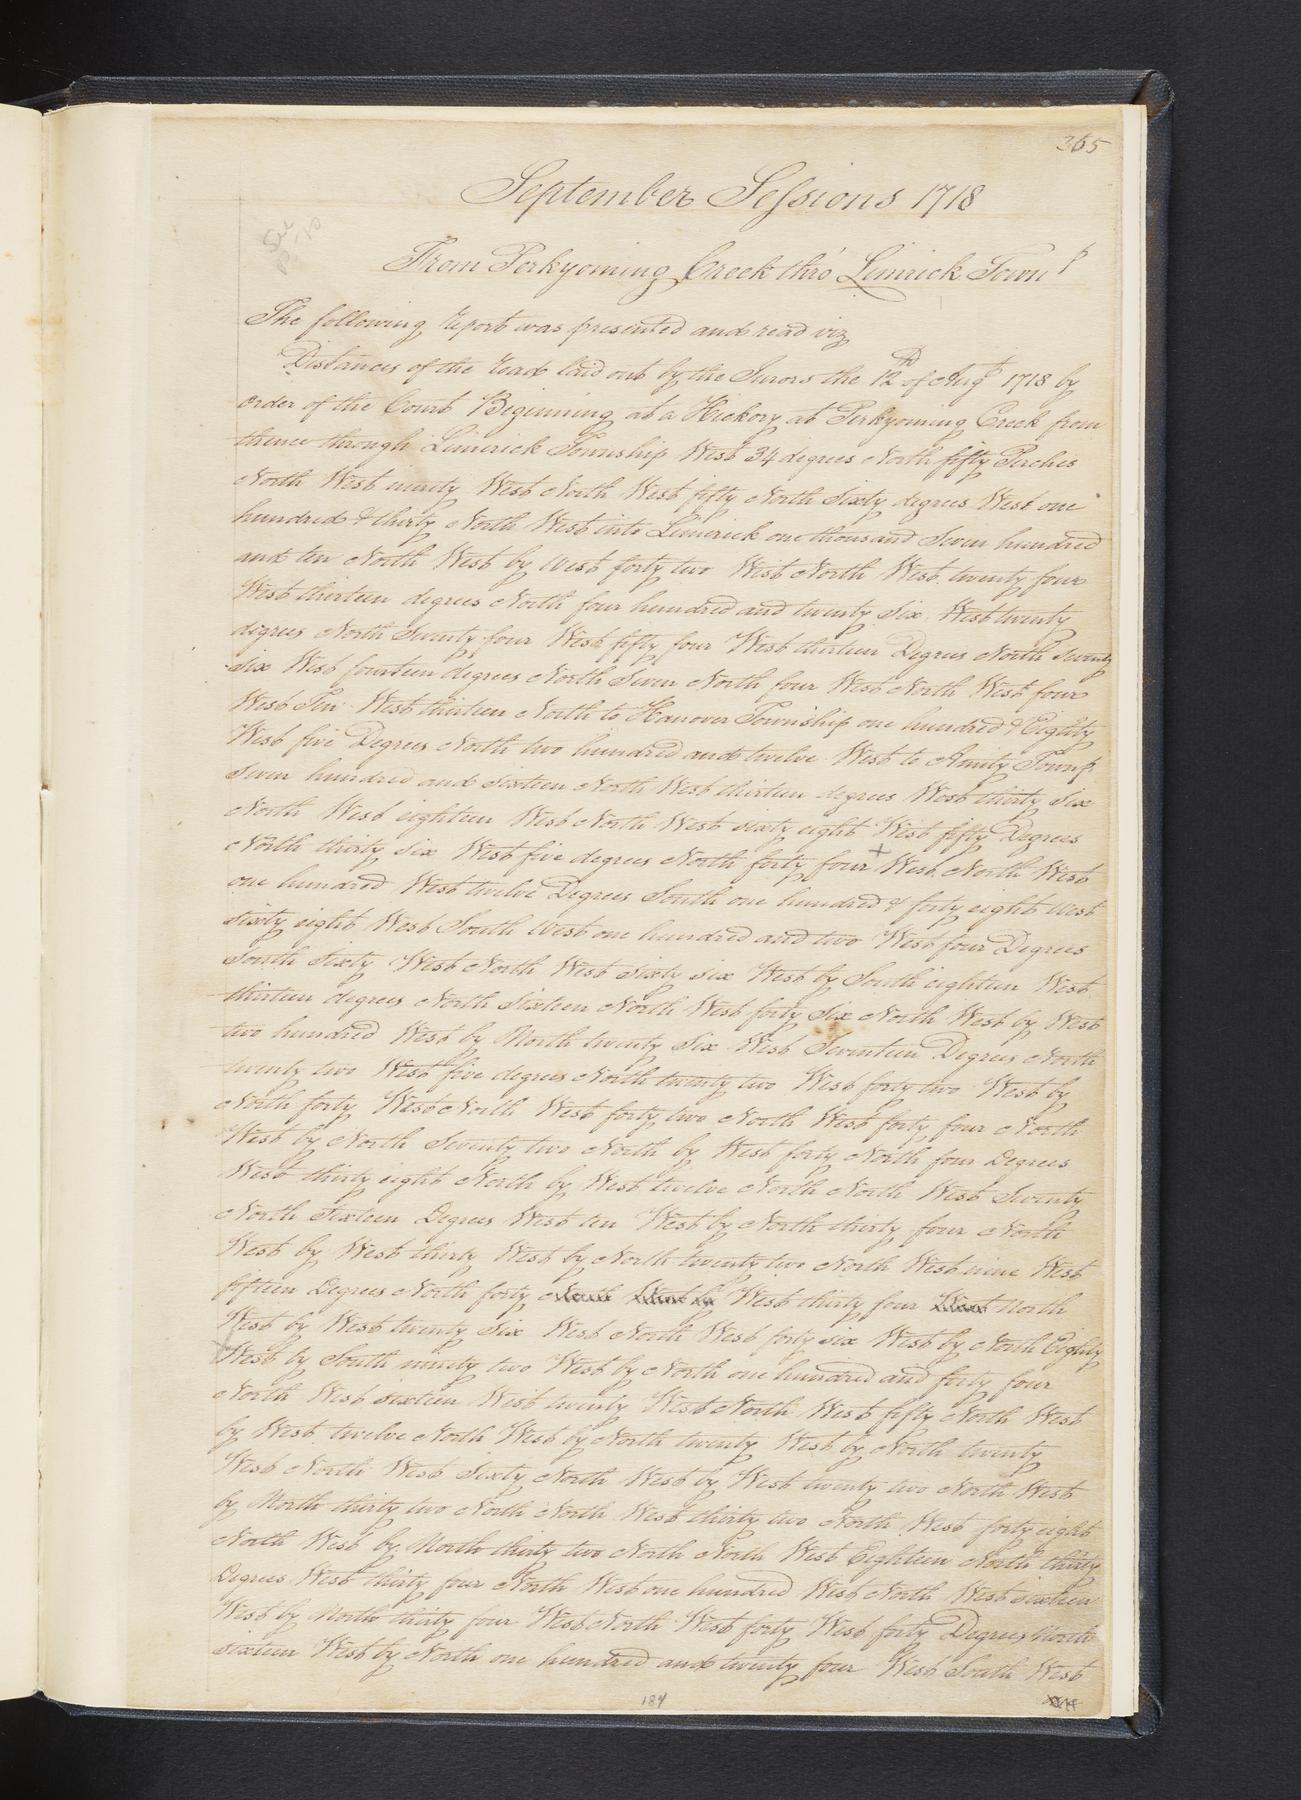 365
September Sessions 1718
See
From Perkyoming Creek thro' Limrick Town p
The following report was presented and read viz
Distances of the road laid out by the Jurors the 12th of Augt 1718 by
order of the Court Beginning at a Hickory at Perkyoming Creek from
thence through Limirick Township West 34 degrees North fifty Perches
North West ninety West North West fifty North Sixty degrees West one
hundred & thirty North West into Limerick one thousand Seven hundred
and ten North West by West forty two West North West twenty four
West thirteen degrees North four hundred and twenty Six West twenty
degrees North Seventy four West fifty four West thirteen Degrees North Seventy
Six West fourteen degrees North Seven North four West North West four
West Ten West thirteen North to Hanover Township one hundred & Eighty
West five Degrees North two hundred and twelve West to Amity Townp
Seven hundred and sixteen North West thirteen degrees West thirty Six
North West eighteen West North West sixty eight West fifty Degrees
North thirty six West five degrees North forty four + West North West
one hundred West twelve Degrees South one hundred & forty eight West
sixty eight West South West one hundred and two West four Degrees
South Sixty West North West Sixty six West by South eighteen West
thirteen degrees North Sixteen North West forty Six North West by West
two hundred West by North twenty Six West Seventeen Degrees North
twenty two West five degrees North twenty two West forty two West by
North forty West North West forty two North West forty four North
West by North Seventy two North by West forty North four Degrees
West thirty eight North by West twelve North North West Seventy
North Sixteen Degrees West ten West by North thirty four North
West by West thirty West by North twenty two North West nine West
fifteen Degrees North forty West thirty four North
West by West twenty Six West North West forty six West by North Eighty
West by South ninety two West by North one hundred and forty four
North West sixteen West twenty West North West fifty North West
by West twelve North West by North twenty West by North twenty
West North West Sixty North West by West twenty two North West
by North thirty two North North West thirty two North West forty eight
North West by North thirty two North North West Eighteen North thirty
Degrees West thirty four North West one hundred West North West sixteen
West by North thirty four West North West forty West forty Degrees North
sixteen West by North one hundred and twenty four West South West
184